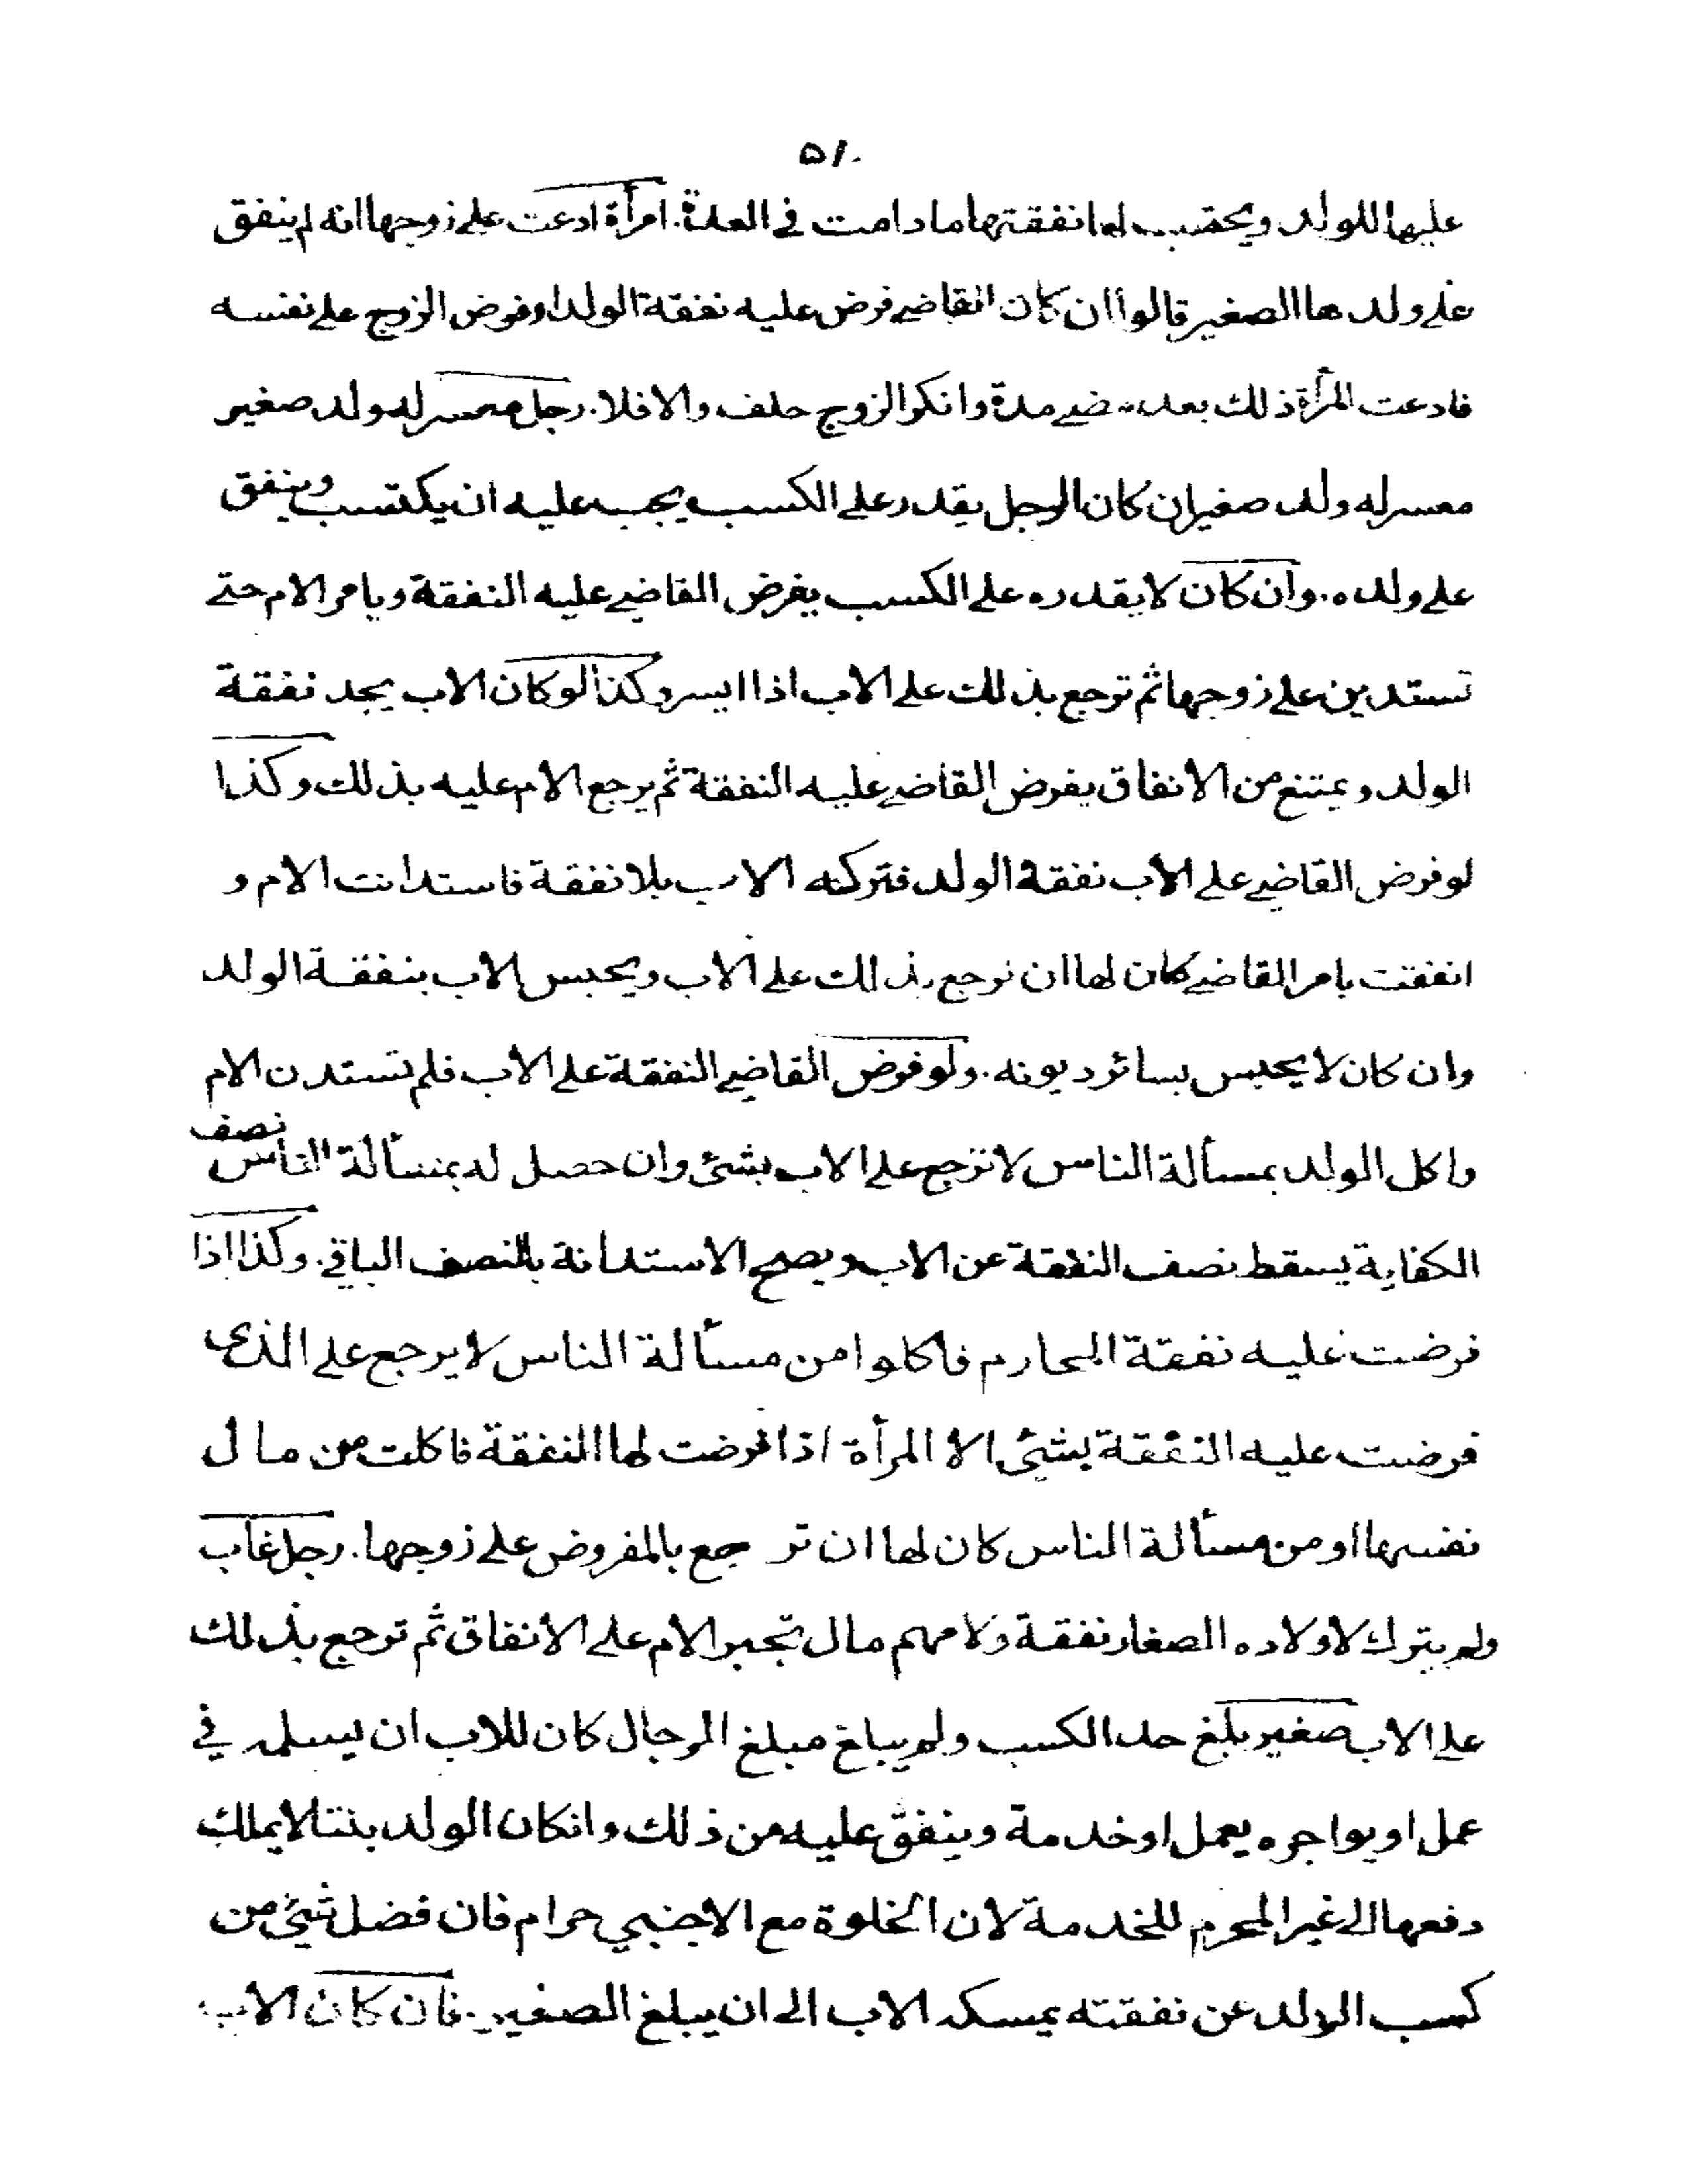 ۵۱۰
عليها للولد ويحتسب لها نفقتها ما دامت في العدة. امرأة ادعت على زوجها انه لم ينفق
على ولدها الصغير قالوا ان كان القاضي فرض عليه نفقة الولد او فرض الزوج على نفسه
فادعت المرأة ذلك بعد مضي مدة وانكر الزوج حلف والا فلا. رجل معسر له ولد صغير
معسر له ولد صغير ان كان الرجل يقدر على الكسب يجب عليه ان يكتسب وينفق
على ولده. وان كان لا يقدره على الكسب يفرض القاضي عليه النفقة ويامر الام حتى
تستدين على زوجها ثم ترجع بذلك على الاب اذا ايسر وكذا لو كان الاب يجد نفقة
الولد ويمتنع من الانفاق يفرض القاضي عليه النفقة ثم يرجع الام عليه بذلك وكذا
لو فرض القاضي على الأب نفقة الولد فتركه الاب بلا نفقة فاستدانت الام و
انفقت بامر القاضي كان لها ان ترجع بذلك على الاب ويحبس الاب بنفقة الولد
وان كان لا يحبس بسائر ديونه. ولو فرض القاضي النفقة على الاب فلم تستدن الام
واكل الولد بمسألة الناس لا ترجع على الاب بشئ وان حصل له بمسألة الناس نصف
الكفاية يسقط نصف النفقة عن الاب ويصح الاستدانة بالنصف الباقي. وكذا اذا
فرضت عليه نفقة المحارم فاكلوا من مسألة الناس لا يرجع على الذى
فرضت عليه النفقة بشئ الا المرأة اذا فرضت لها النفقة فاكلت من مال
نفسها او من مسألة الناس كان لها ان ترجع بالمفروض على زوجها. رجل غاب
ولم يترك لاولاده الصغار نفقة ولامهم مال تجبر الام على الانفاق ثم ترجع بذلك
على الاب صغير بلغ حد الكسب ولم يبلغ مبلغ الرجال كان للاب ان يسلمه في
عمل او يواجره بعمل او خدمة وينفق عليه من ذلك وانكان الولد بنتا لا يملك
دفعها الى غير المحرم للخدمة لان الخلوة مع الاجنبي حرام فان فضل شئ من
كسب الولد عن نفقته يمسكه الاب الى ان يبلغ الصغير. فان كان الاب